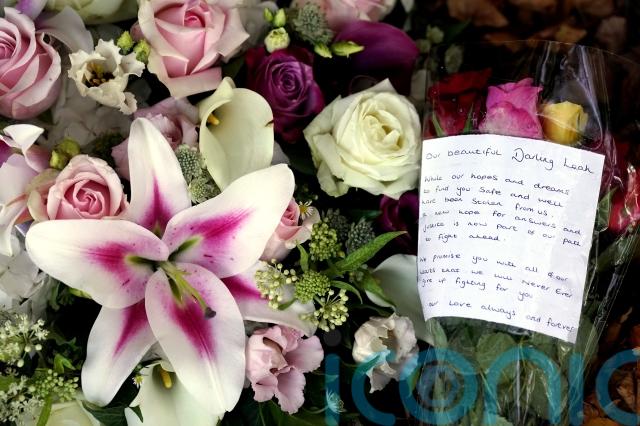 Our beautiful Darling Leah
While our hopes and dreams
to find you safe and well
have been stolen from us.
A new hope for answers and
justice is now part of our path
to fight ahead.
We promise you with all of our
hearts that we will never ever
give up fighting for you
our love always and forever
iconic